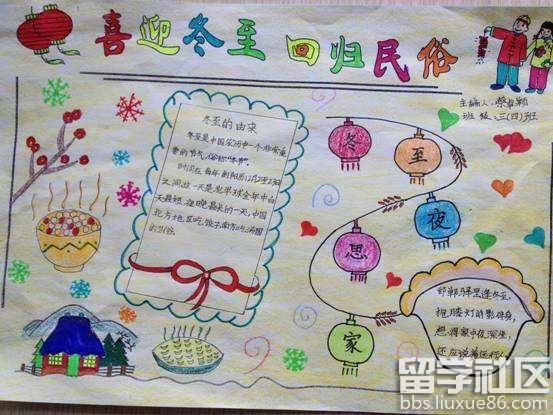 喜迎冬至 回归民俗
主编人:蔡
班级:三(四)班
冬至的由来
冬至是中国农历中一个非常重
要的节气,俗称"冬节"。
时间在每年的阳历12月21至23日
之间,这一天是北半球全年中白
天最短、夜晚最长的一天,中国
北方地区吃饺子南方吃汤圆
的习俗。
冬
至
夜
思
家
邯郸驿里逢冬至,
抱膝灯前影伴身,
想得家中夜深坐,
还应说着远行人
留学社区
bbs.liuxue86.com